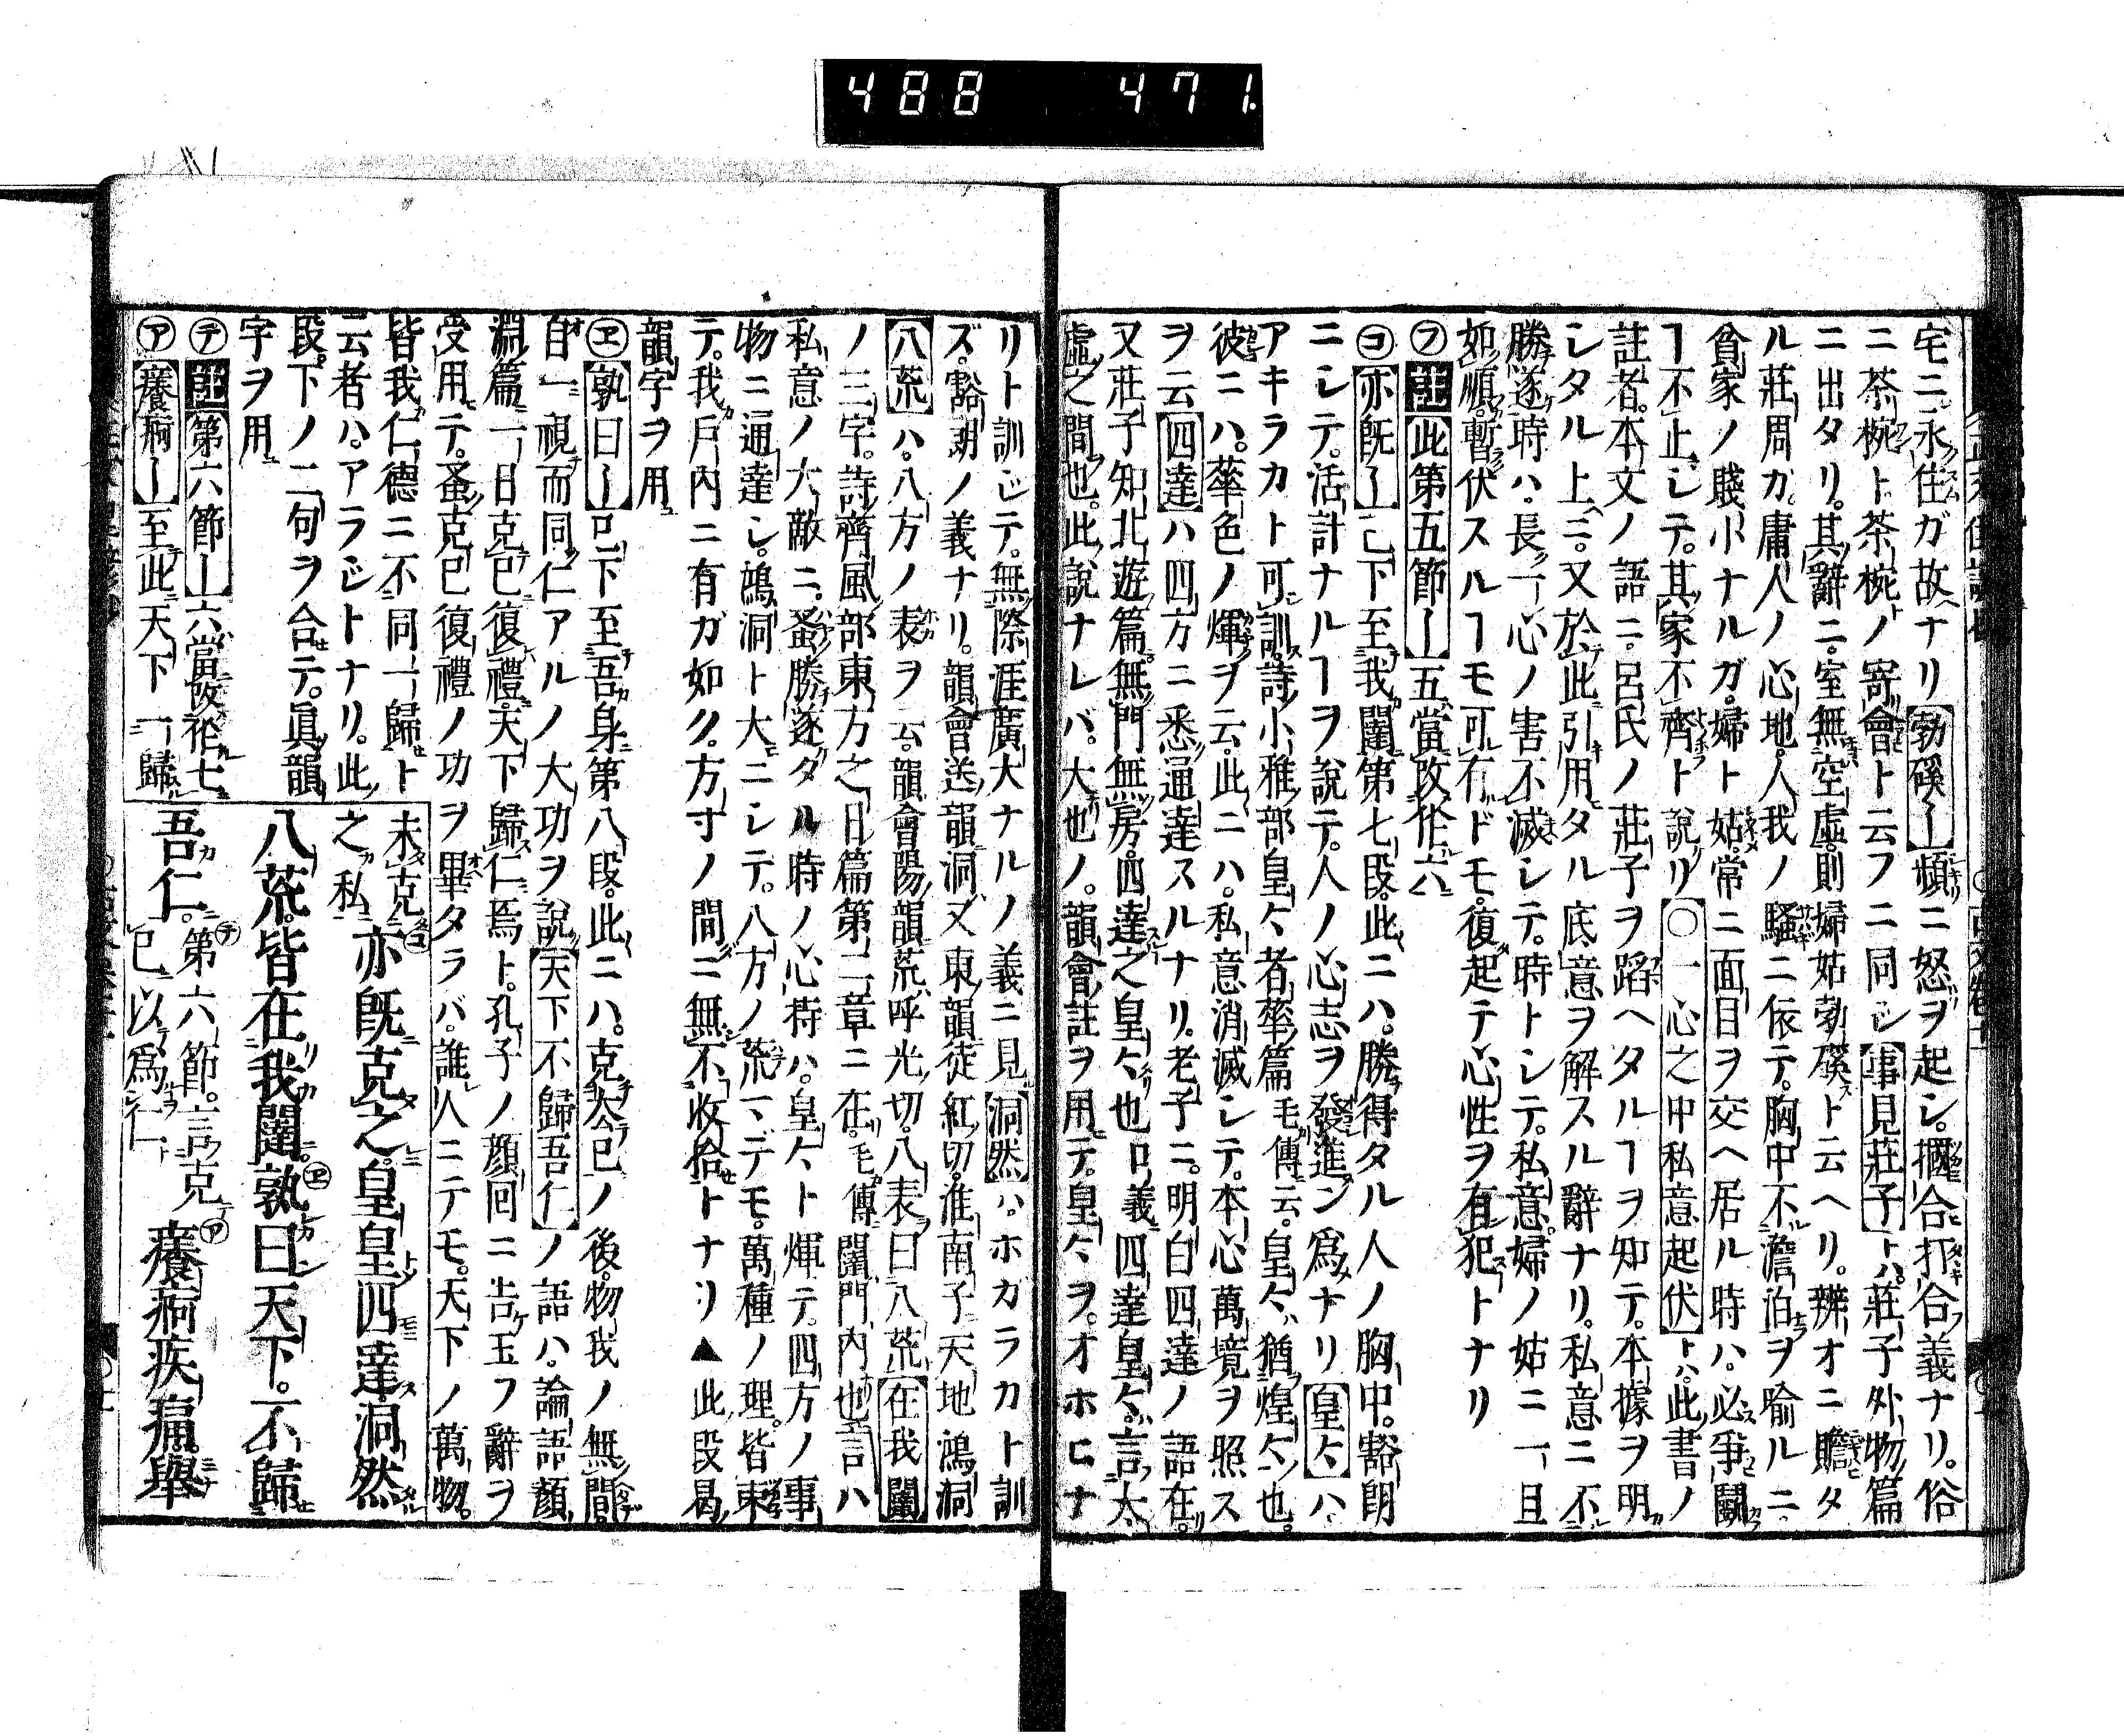 488 471.
宅ニ永住ガ故ナリ勃磎〡頻ニ怒ヲ起シ摑合扣合義ナリ俗
ニ茶椀ト茶椀ノ寄會ト云フニ同シ事見莊子トハ莊子外物篇
ニ出タリ其辭ニ室無空虛則婦姑勃磎ト云ヘリ辨オニ贍タ
ル莊周カ庸人ノ心地人我ノ騷ニ依テ胸中不澹泊ヲ喻ルニ
貧家ノ賤小ナルガ婦ト姑常ニ面目ヲ交ヘ居ル時ハ必爭鬭
ヿ不止シテ其家不齊ト說リ○一心之中私意起伏トハ此書ノ
註者本文ノ語ニ呂氏ノ莊子ヲ蹈ヘタルヿヲ知テ本據ヲ明
シタル上ニ又於此引用タル底意ヲ解スル辭ナリ私意ニ不
勝遂時ハ長ヿ心ノ害不滅シテ時トシテ私意婦ノ姑ニ一旦
如順暫伏スルヿモ可有ドモ復起テ心性ヲ有犯トナリ
㋫註此第五節〡五當改作六
㋙亦旣〡已下至我闥第七段此ニハ勝得タル人ノ胸中豁朗
ニシテ活計ナルヿヲ說テ人ノ心志ヲ發進ン爲ナリ皇々ハ
アキラカト可訓詩小雅部皇々者華篇毛傳云皇々猶煌々也
彼ニハ華色ノ煇ヲ云此ニハ私意消滅シテ本心萬境ヲ照ス
ヲ云四達ハ四方ニ悉通達スルナリ老子ニ明白四達ノ語在
又莊子知北遊篇無門無房四達之皇々也口義四達皇々言太
虛之間也此說ナレバ大也ノ韻會註ヲ用テ皇々ヲオホヒナ
リト訓ジテ無際涯廣大ナルノ義ニ見洞然ハホガラカト訓
ズ豁朗ノ義ナリ韻會送韻洞又東韻徒紅切淮南子天地鴻洞
八荒ハ八方ノ表ヲ云韻會陽韻荒呼光切八表曰八荒在我闥
ノ三字詩齊風部東方之日篇第二章ニ在毛傳闥門內也言ハ
私意ノ大敵ニ蚤勝遂タル時ノ心持ハ皇々ト煇テ四方ノ事
物ニ通達シ鴻洞ト大ニシテ八方ノ荒マデモ萬種ノ理皆束
テ我戶內ニ有ガ如ク方寸ノ間ニ無不收拾トナリ▲此段曷
韻字ヲ用
㋓孰曰〡已下至吾身第八段此ニハ克去已ノ後物我ノ無間
自一視而同仁アルノ大功ヲ說天下不歸吾仁ノ語ハ論語顏
淵篇一日克已復禮天下歸仁焉ト孔子ノ顏回ニ吿玉フ辭ヲ
受用テ蚤克已復禮ノ功ヲ畢タラバ誰人ニテモ天下ノ萬物
皆我仁德ニ不同一歸ト
云者ハアラジトナリ此
段下ノ二句ヲ合テ眞韻
字ヲ用
㋢註第六節〡六當改作七
㋐癢痾〡至此天下一歸
未克
之私亦旣克之皇皇四達洞然
八荒皆在我闥孰曰天下不歸
吾仁第六節言克
已以爲仁癢痾疾痛擧